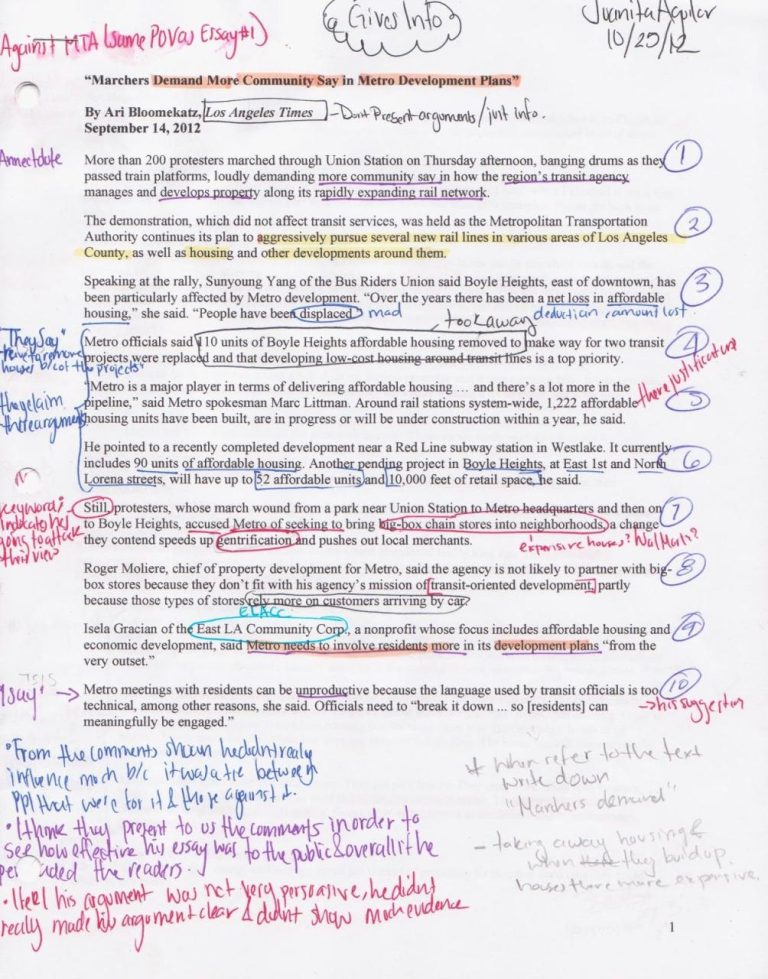 Gives Info
Juanita Agilar
10/25/12
Against MTA (same POV as Essay #1)
“Marchers Demand More Community Say in Metro Development Plans”
By Ari Bloomekatz, Los Angeles Times - Dont Present arguments/just info.
September 14, 2012
Annectdote
More than 200 protesters marched through Union Station on Thursday afternoon, banging drums as they 1
passed train platforms, loudly demanding more community say in how the region’s transit agency
manages and develops property along its rapidly expanding rail network.
The demonstration, which did not affect transit services, was held as the Metropolitan Transportation 2
Authority continues its plan to aggressively pursue several new rail lines in various areas of Los Angeles
County, as well as housing and other developments around them.
Speaking at the rally, Sunyoung Yang of the Bus Riders Union said Boyle Heights, east of downtown, has 3
been particularly affected by Metro development. “Over the years there has been a net loss in affordable
housing,” she said. “People have been displaced.” mad
deduction, amount lost.
, took away
"They Say"
Metro officials said 110 units of Boyle Heights affordable housing removed to make way for two transit 4
projects were replaced and that developing low-cost housing around transit lines is a top priority.
houses b/c of the projects
there justification
“Metro is a major player in terms of delivering affordable housing … and there’s a lot more in the
pipeline,” said Metro spokesman Marc Littman. Around rail stations system-wide, 1,222 affordable 5
housing units have been built, are in progress or will be under construction within a year, he said.
they claim
there arguments
He pointed to a recently completed development near a Red Line subway station in Westlake. It currently
includes 90 units of affordable housing. Another pending project in Boyle Heights, at East 1st and North 6
Lorena streets, will have up to 52 affordable units and 10,000 feet of retail space, he said.
keyword;
indicate hes
going to attack
this view
Still, protesters, whose march wound from a park near Union Station to Metro headquarters and then on 7
to Boyle Heights, accused Metro of seeking to bring big-box chain stores into neighborhoods, a change
they contend speeds up gentrification and pushes out local merchants.
expensive houses? WalMart?
Roger Moliere, chief of property development for Metro, said the agency is not likely to partner with big- 8
box stores because they don’t fit with his agency’s mission of transit-oriented development, partly
because those types of stores rely more on customers arriving by car.
ELACC
Isela Gracian of the East LA Community Corp., a nonprofit whose focus includes affordable housing and 9
economic development, said Metro needs to involve residents more in its development plans “from the
very outset.”
I say"
Metro meetings with residents can be unproductive because the language used by transit officials is too 10
technical, among other reasons, she said. Officials need to “break it down … so [residents] can
meaningfully be engaged.”
his suggestion
• From the comments shown he didnt really
influence much b/c it was a tie between
ppl that were for it & those against it.
• I think they present to us the comments in order to
see how effective his essay was to the public & overall if he
persuaded the readers.
• I feel his argument was not very persuasive, he didnt
really made his argument clear & didnt show much evidence
* When refer to the text
write down
"Marchers demand"
- taking away housing &
when they build up
houses there more expensive.
1